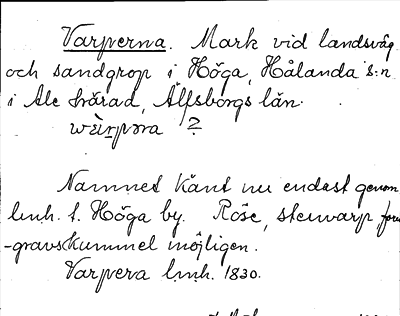 Varperna. Mark vid landsväg
och sandgrop i Höga, Hålanda s:n
i Ale härad, Älfsborgs län.
wàrpəra ?
Namnet känt nu endast genom
lmh. t. Höga by. Röse, stenvarp forn
-gravskummel möjligen.
Varpera lmh. 1830.